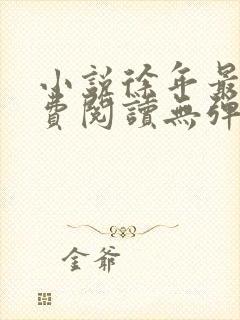 小說徐年最
費閱讀無彈
金爺